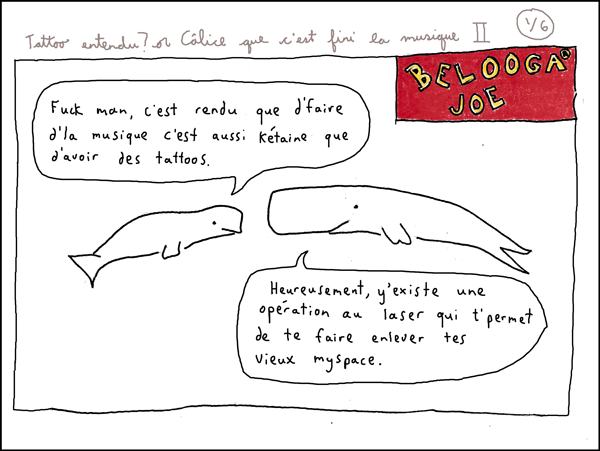 Tattoo entendu? ou Câlice que c'est fini la musique II
1/6
BELOOGA
JOE
Fuck man, c'est rendu que d'faire
d'la musique c'est aussi kétaine que
d'avoir des tattoos.
Heureusement, y'existe une
opération au laser qui t'permet
de te faire enlever tes
vieux myspace.